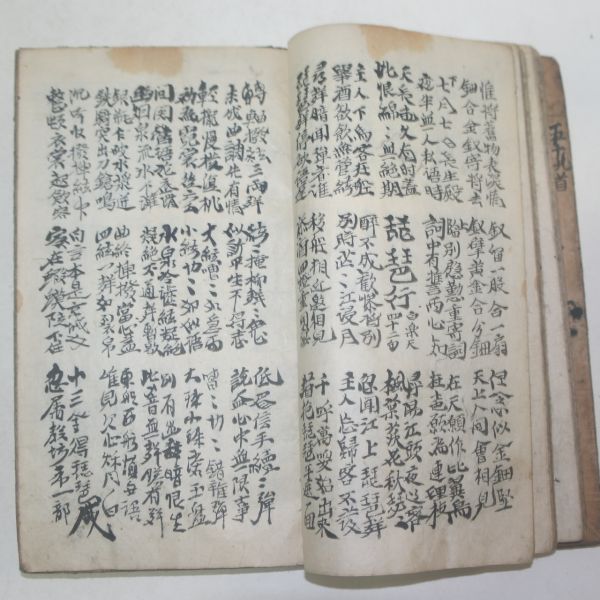 惟將舊物表深情
鈿合金釵寄將去
釵留一股合一扇
釵擘黃金合分鈿
但念心似金鈿堅
天上人間會相見
下七月七日長生殿
夜半無人私語時
上臨別慇懃重寄詞
詞中有誓兩心知
在天願作比翼鳥
在地願為連理枝
天長地久有時盡
此恨綿綿無絕期
琵琶行 白樂天
潯陽江頭夜送客
楓葉荻花秋瑟瑟
主人下馬客在船
舉酒欲飲無管絃
醉不成歡慘將別
別時茫茫江浸月
忽聞江上琵琶聲
主人忘歸客不發
尋聲暗問彈者誰
琵琶聲停欲語遲
移船相近邀相見
添酒回燈重開宴
千呼萬喚始出來
猶抱琵琶半遮面
轉軸撥絃三兩聲
未成曲調先有情
絃絃掩抑聲聲思
似訴平生不得志
低眉信手續續彈
說盡心中無限事
輕攏慢撚撥復挑
初為霓裳後六么
大絃嘈嘈如急雨
小絃切切如私語
嘈嘈切切錯雜彈
大珠小珠落玉盤
間關鶯語花底滑
幽咽泉流水下灘
水泉冷澁絃凝絕
凝絕不通聲暫歇
別有幽愁暗恨生
此時無聲勝有聲
銀瓶乍破水漿迸
鐵騎突出刀鎗鳴
曲終抽撥當心畫
四絃一聲如裂帛
東船西舫悄無語
唯見江心秋月白
沉吟收撥揷絃中
整頓衣裳起斂容
自言本是京城女
家在蝦蟆陵下住
十三學得琵琶成
名屬教坊第一部